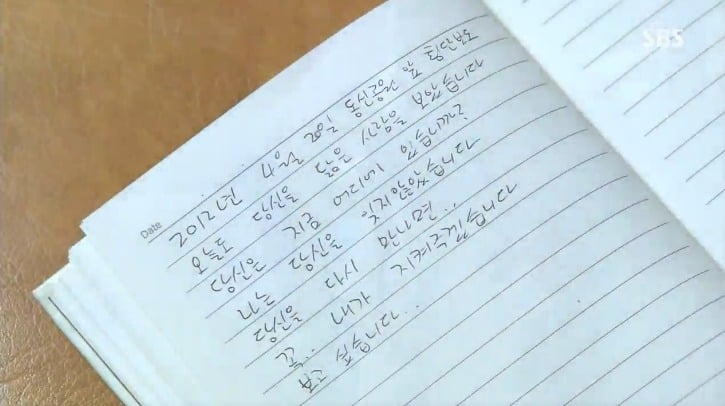 SBS
Date
2012년 4월 28일 앞 횡단보도
오늘도 당신을 닮은 사람을 보았습니다
당신은 지금 어디에 있습니까?
나는 당신을 잊지 않았습니다
당신을 다시 만나면..
꼭.. 내가 지켜주겠습니다
싶습니다..